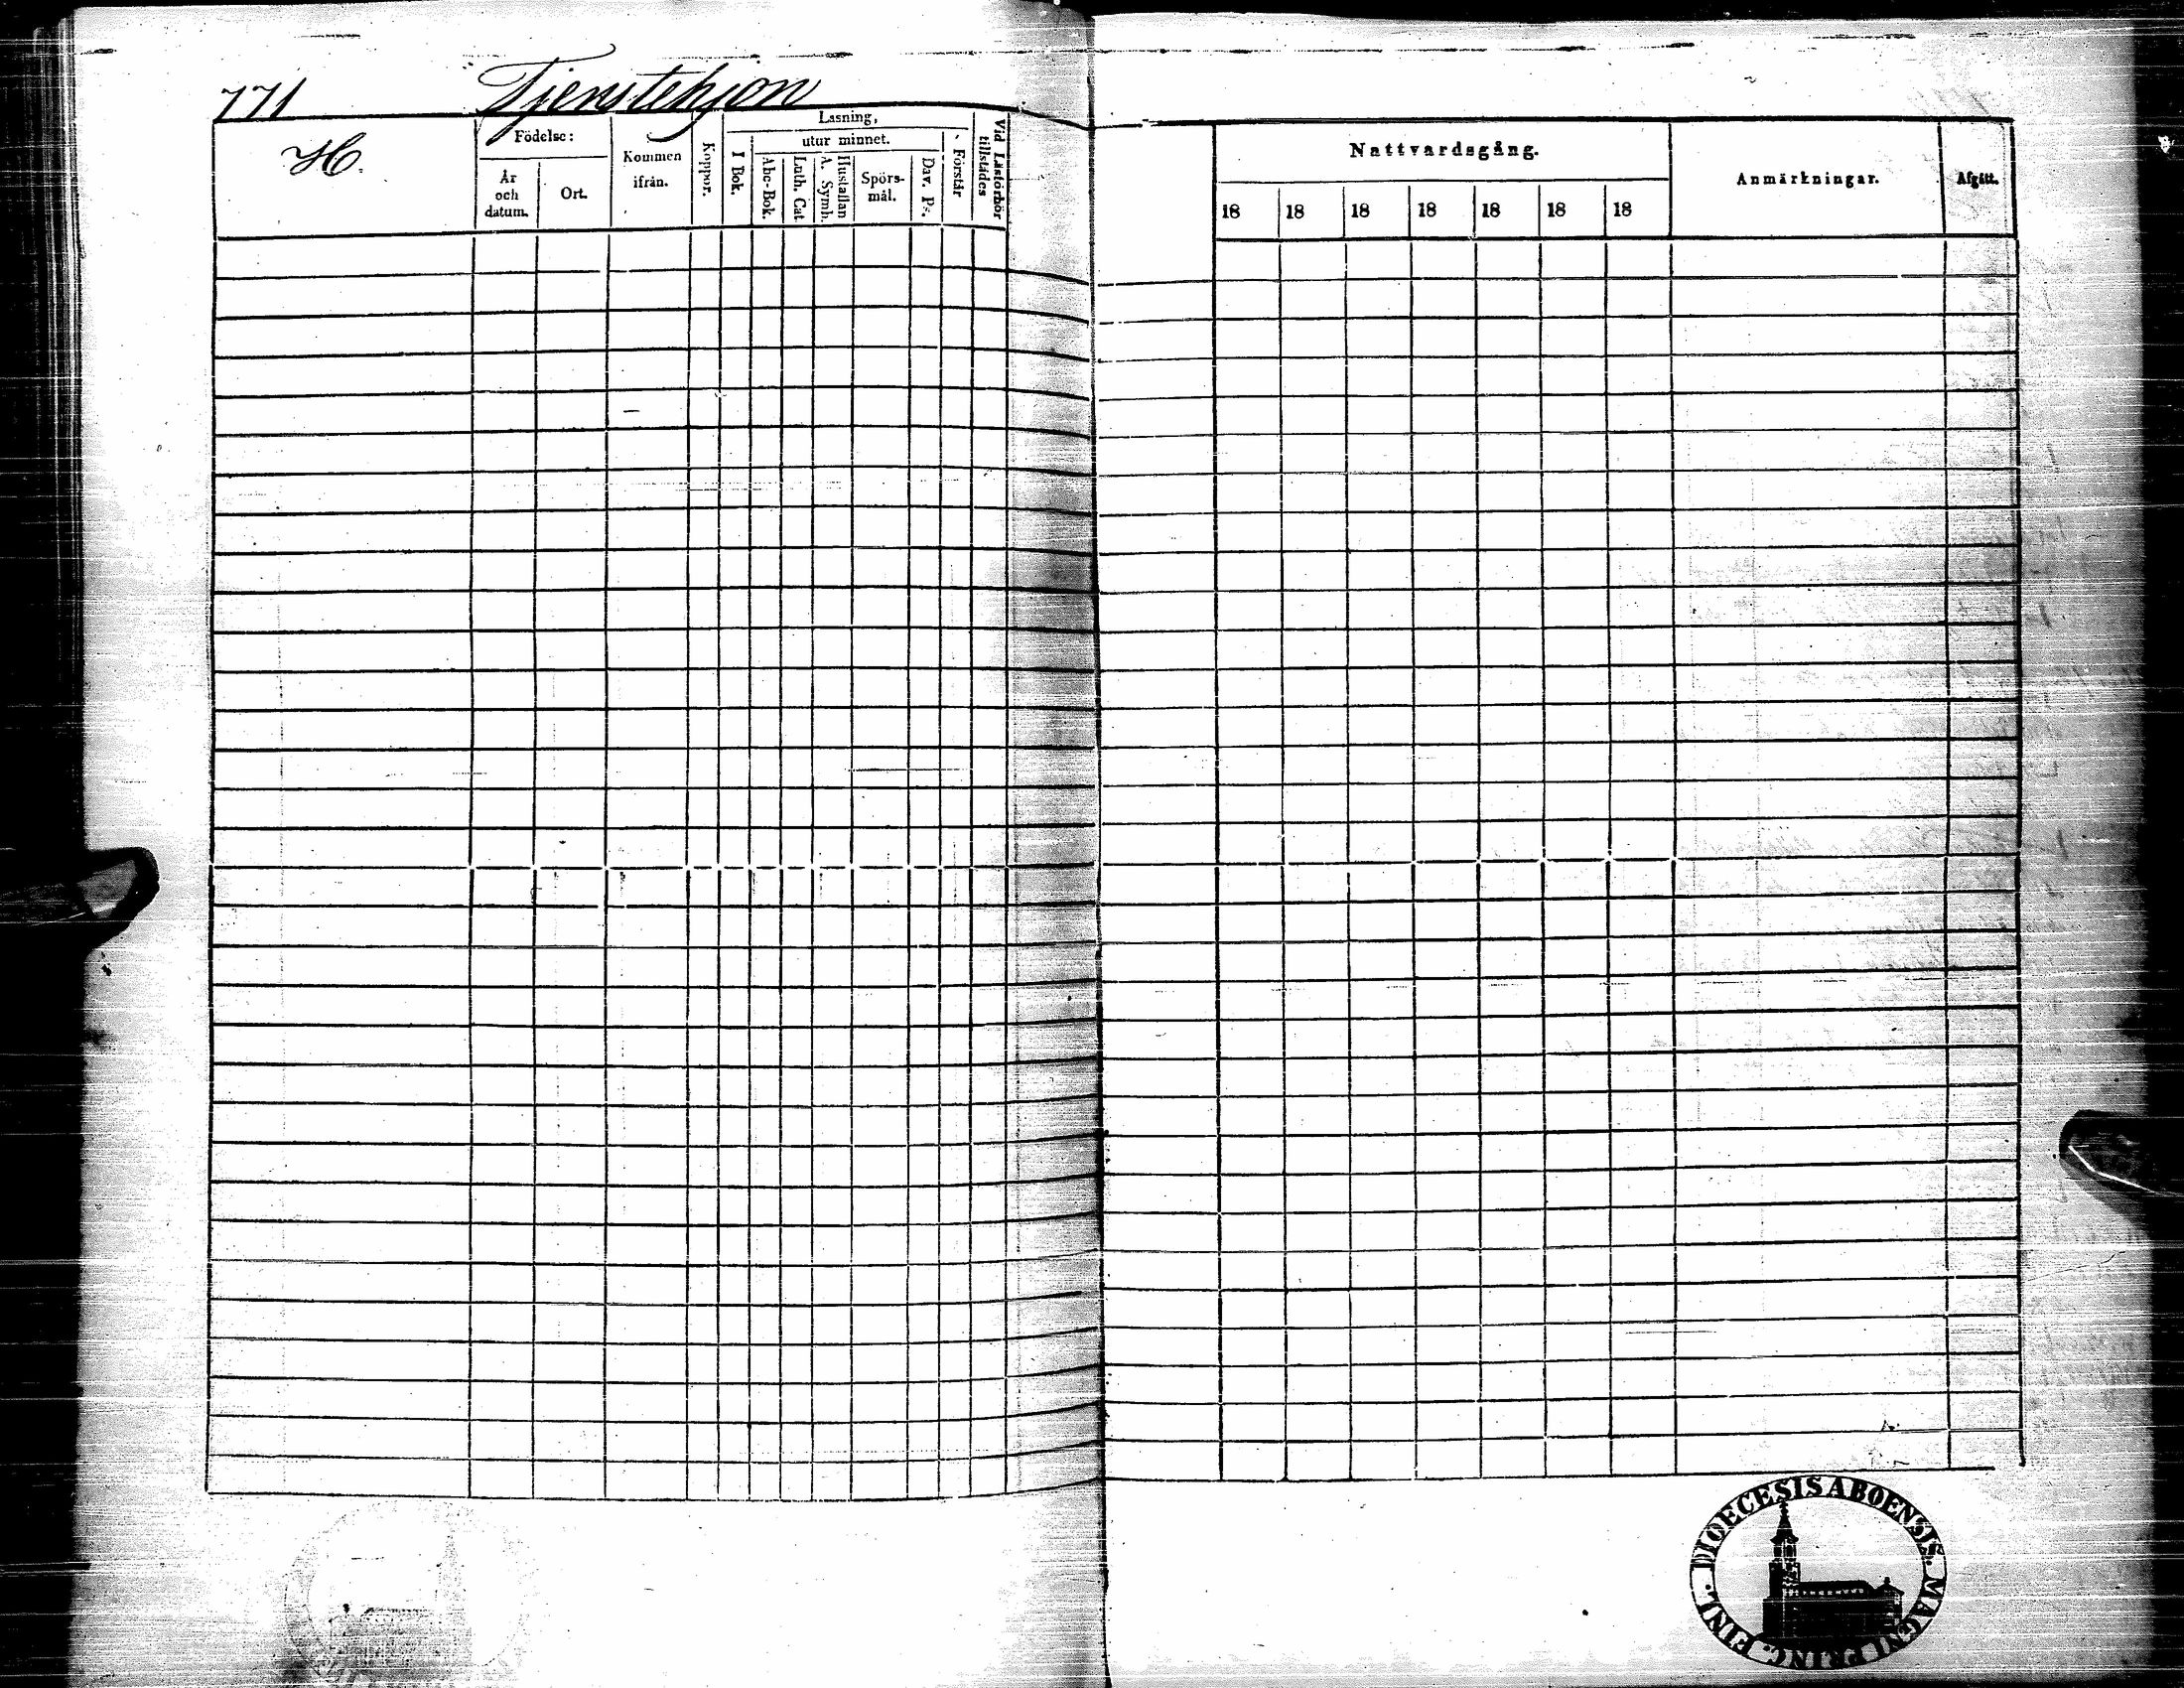 771 Tjenstehjon
H.
Födelse:
År
och
datum.
Ort.
Kommen
ifrån.
Koppor.
Läsning,
I Bok.
utur minnet.
Abc-Bok.
Luth. Cat.
Hustaflan
A. Symb.
Spörs-
mål.
Dav. Ps.
Förstår
Vid Läsförhör
tillstädes
Nattvardsgång.
18 18 18 18 18 18 18
Anmärkningar.
Afgått.
DIOECESIS ABOENSIS. MAGNI PRINC. FINL.